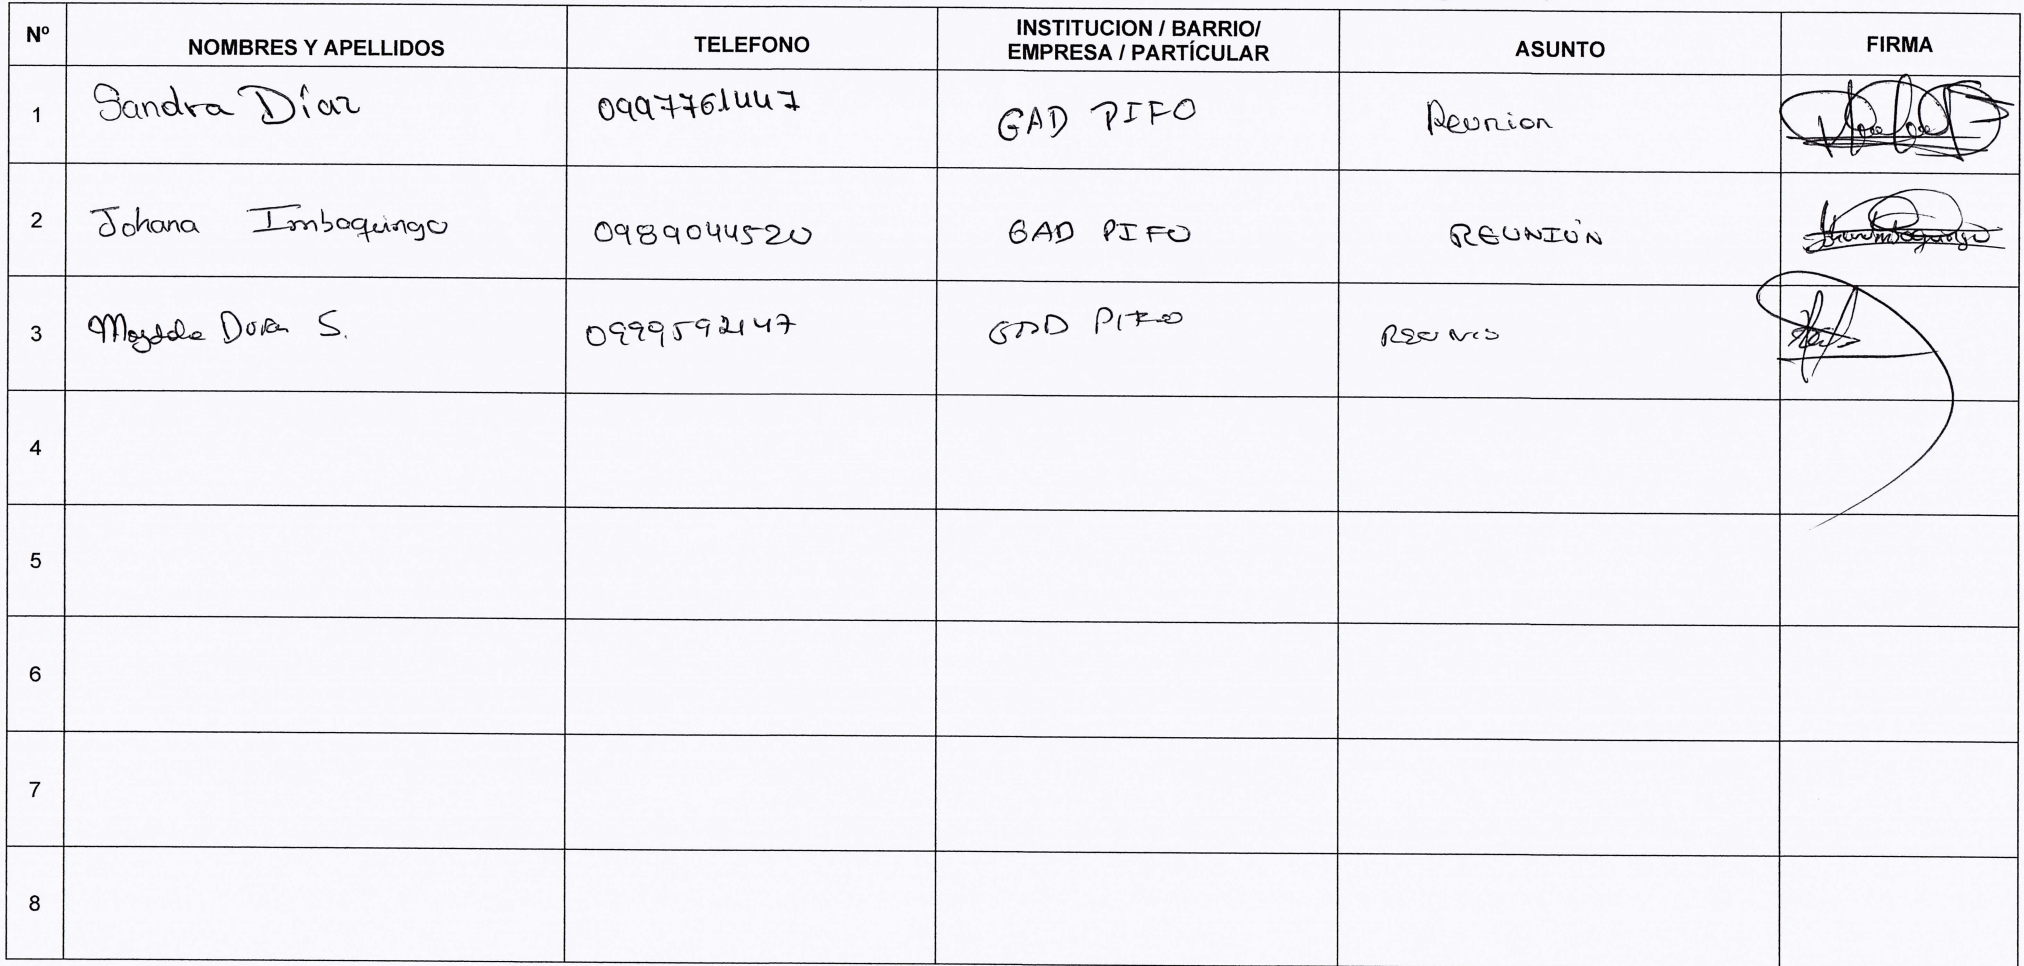 Nº NOMBRES Y APELLIDOS TELEFONO INSTITUCION / BARRIO/ EMPRESA / PARTÍCULAR ASUNTO FIRMA
1 Sandra Díaz 0997761447 GAD PIFO Reunion
2 Johana Imbaquingo 0989044520 GAD PIFO REUNIÓN
3 Magdala Duran S. 0999592147 GAD PIFO
4
5
6
7
8